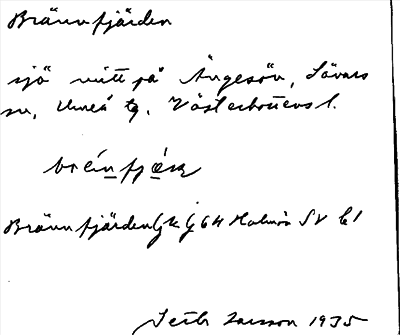 Brännfjärden
sjö mitt på Ängesön, Sävars
sn, Umeå tg. Västerbottens l.
bréi̲nfjæ̲ɳ
Brännfjärden Gk J 64 Holmön SV b1
Seth Larsson 1935